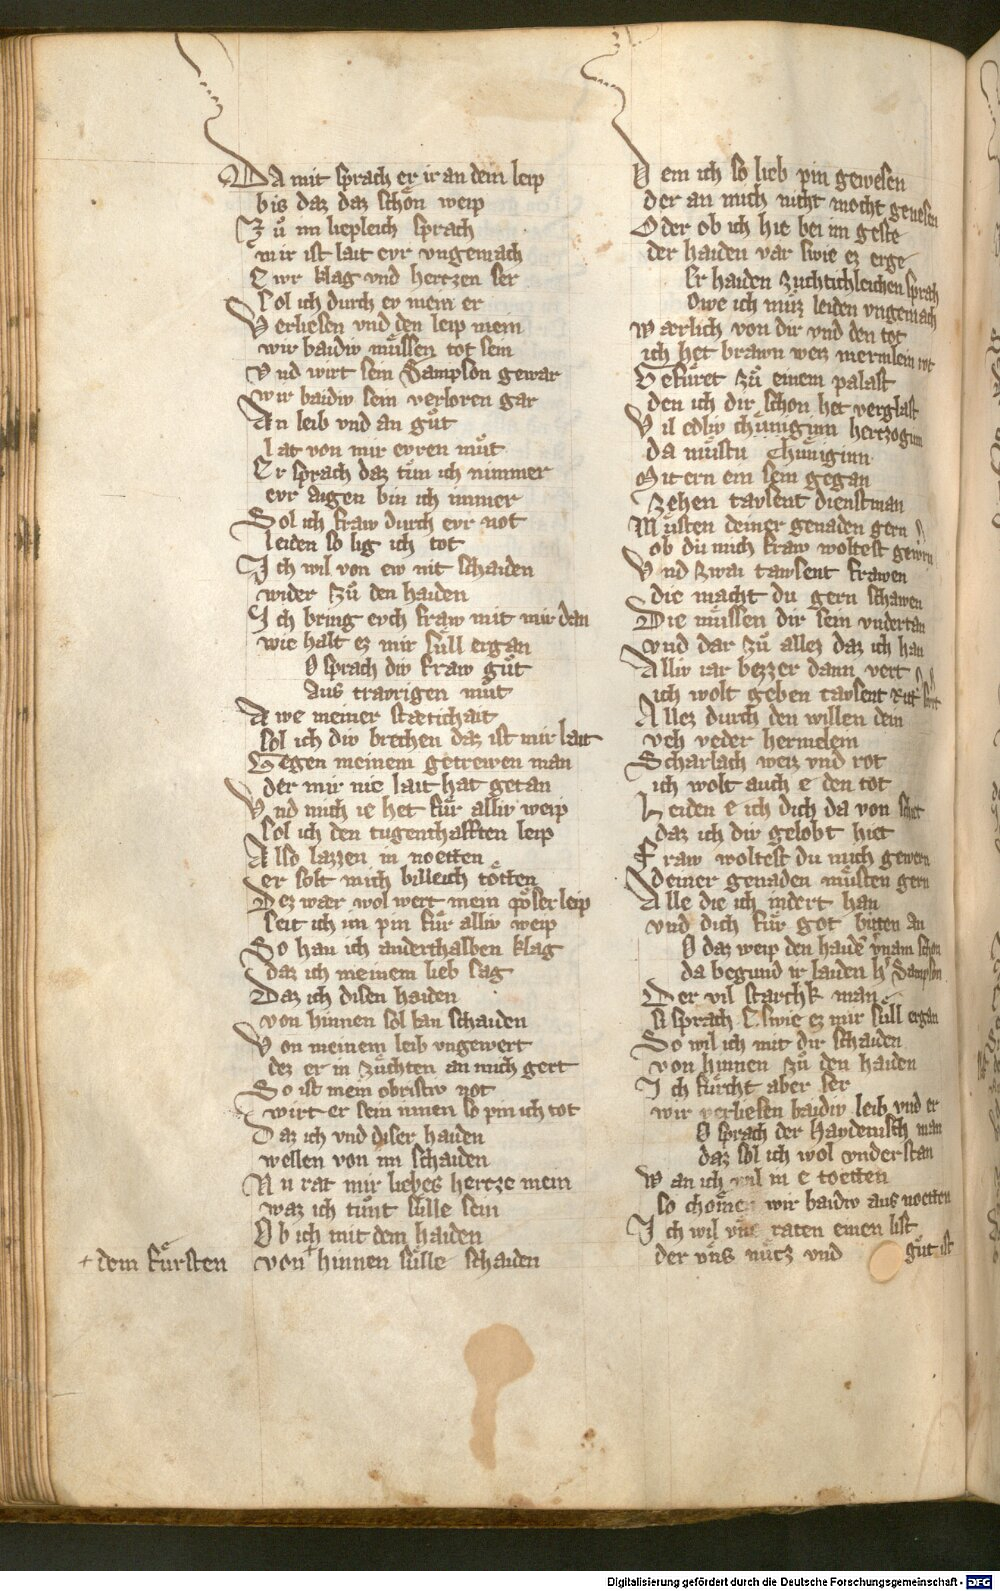 Da mit sprach er ir an dem leip
bis daz daz schön weip
Zů im liepleich sprach
mir ist lait evr vngemach
Ewr klag vnd hertzen ser
Sol ich durch ev mein er
Verliesen vnd den leip mein
wir baidiv mu̇ssen tot sein
Vnd wirt sein Sampson gewar
wir baidiv sein verloren gar
An leib vnd an gůt
lat von mir evren můt
Er sprach daz tůn ich nimmer
evr aigen bin ich immer
Sol ich fraw durch evr not
leiden so lig ich tot
Ich wil von ew nit schaiden
wider zů den haiden
Ich bring evch fraw mit mir dan
wie halt ez mir sůll ergan
O sprach div fraw gůt
Aus travrigen můt
Awe meiner stætichait
sol ich div brechen daz ist mir lait
Gegen meinem getrewen man
der mir nie lait hat getan
Vnd mich ie het fůr alliv weip
sol ich den tugenthafften leip
Also lazzen in noetten
er solt mich billeich tötten
Dez wær wol wert mein pöser leip
seit ich im pin fůr alliv weip
So han ich anderthalben klag
daz ich meinem lieb sag
Daz ich disen haiden
von hinnen sol lan schaiden
Von meinem leib vngewert
dez er in zůchten an mich gert
So ist mein obristiv not
wirt er sein innen so pin ich tot
Daz ich vnd diser haiden
wellen von im schaiden
Nu rat mir liebes hertze mein
waz ich tůnt sůlle sein
Ob ich mit dem haiden
+ dem fůrsten von + hinnen sůlle schaiden
Dem ich so lieb pin gewesen
der an mich nicht mocht genesen
Oder ob ich hie bei im geste
der haiden var swie ez erge
Er haiden zuchtichleichen sprah
Owe ich můz leiden vngemach
Wærlich von dir vnd den tot
ich het brawn weiz mermlein rot
Gefůret zů einem palast
den ich dir schon het verglast
Vil edliv chůniginn hertzoginn
da můstu chůniginn
Mit ern ein sein gegan
zehen tavsent dienstman
Můsten deiner genaden gern
ob du mich fraw woltest gewern
Vnd zwai tawsent frawen
die macht du gern schawen
Die můssen dir sein vndertan
vnd dar zů allez daz ich han
Alliv iar bezzer dann vert
ich wolt geben tavsent
Allez durch den willen dein
veh veder hermelein
Scharlach weiz vnd rot
ich wolt auch e den tot
Leiden e ich dich da von schiet
daz ich dir gelobt hiet
Fraw woltest du mich gewern
deiner genaden můsten gern
Alle die ich indert han
vnd dich fůr got bitten an
O daz weip den haidē vnam schon
da begund ir laiden h' Sampson
Der vil starchk man
si sprach swie ez mir sůll ergan
So wil ich mit dir schaiden
von hinnen zů den haiden
Ich fůrcht aber ser
wir verliesen baidiv leib vnd er
O sprach der haydenisch man
daz sol ich wol vnderstan
Wan ich wil in e toetten
so chomen wir baidiv aus noetten
Ich wil raten einen list
der vns nůtz vnd gůt ist
Digitalisierung gefördert durch die Deutsche Forschungsgemeinschaft - DFG